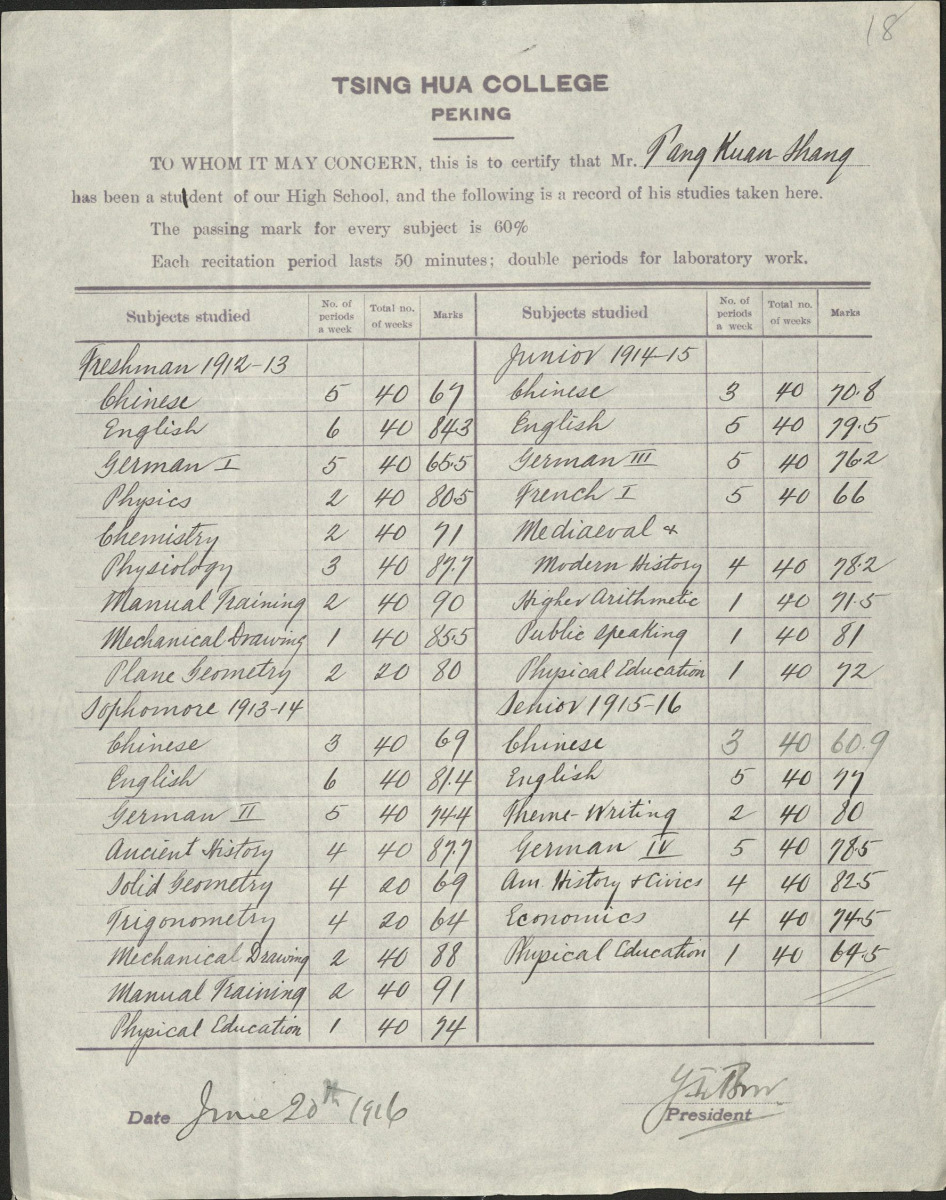 18
TSING HUA COLLEGE
PEKING
TO WHOM IT MAY CONCERN, this is to certify that Mr. Pang Kuan Shang
has been a student of our High School, and the following is a record of his studies taken here.
The passing mark for every subject is 60%
Each recitation period lasts 50 minutes; double periods for laboratory work.
Subjects studied No. of periods a week Total no. of weeks Marks
Freshman 1912-13
Chinese 5 40 67
English 6 40 84.3
German I 5 40 65.5
Physics 2 40 80.5
Chemistry 2 40 71
Physiology 3 40 87.7
Manual Training 2 40 90
Mechanical Drawing 1 40 85.5
Plane Geometry 2 20 80
Sophomore 1913-14
Chinese 3 40 69
English 6 40 81.4
German II 5 40 74.4
Ancient History 4 40 87.7
Solid Geometry 4 20 69
Trigonometry 4 20 64
Mechanical Drawing 2 40 88
Manual Training 2 40 91
Physical Education 1 40 74
Subjects studied No. of periods a week Total no. of weeks Marks
Junior 1914-15
Chinese 3 40 70.8
English 5 40 79.5
German III 5 40 76.2
French I 5 40 66
Mediaeval &
Modern History 4 40 78.2
Higher Arithmetic 1 40 71.5
Public Speaking 1 40 81
Physical Education 1 40 72
Senior 1915-16
Chinese 3 40 60.9
English 5 40 77
Theme-Writing 2 40 80
German IV 5 40 78.5
Am. History & Civics 4 40 82.5
Economics 4 40 74.5
Physical Education 1 40 64.5
Date June 20th 1916
President